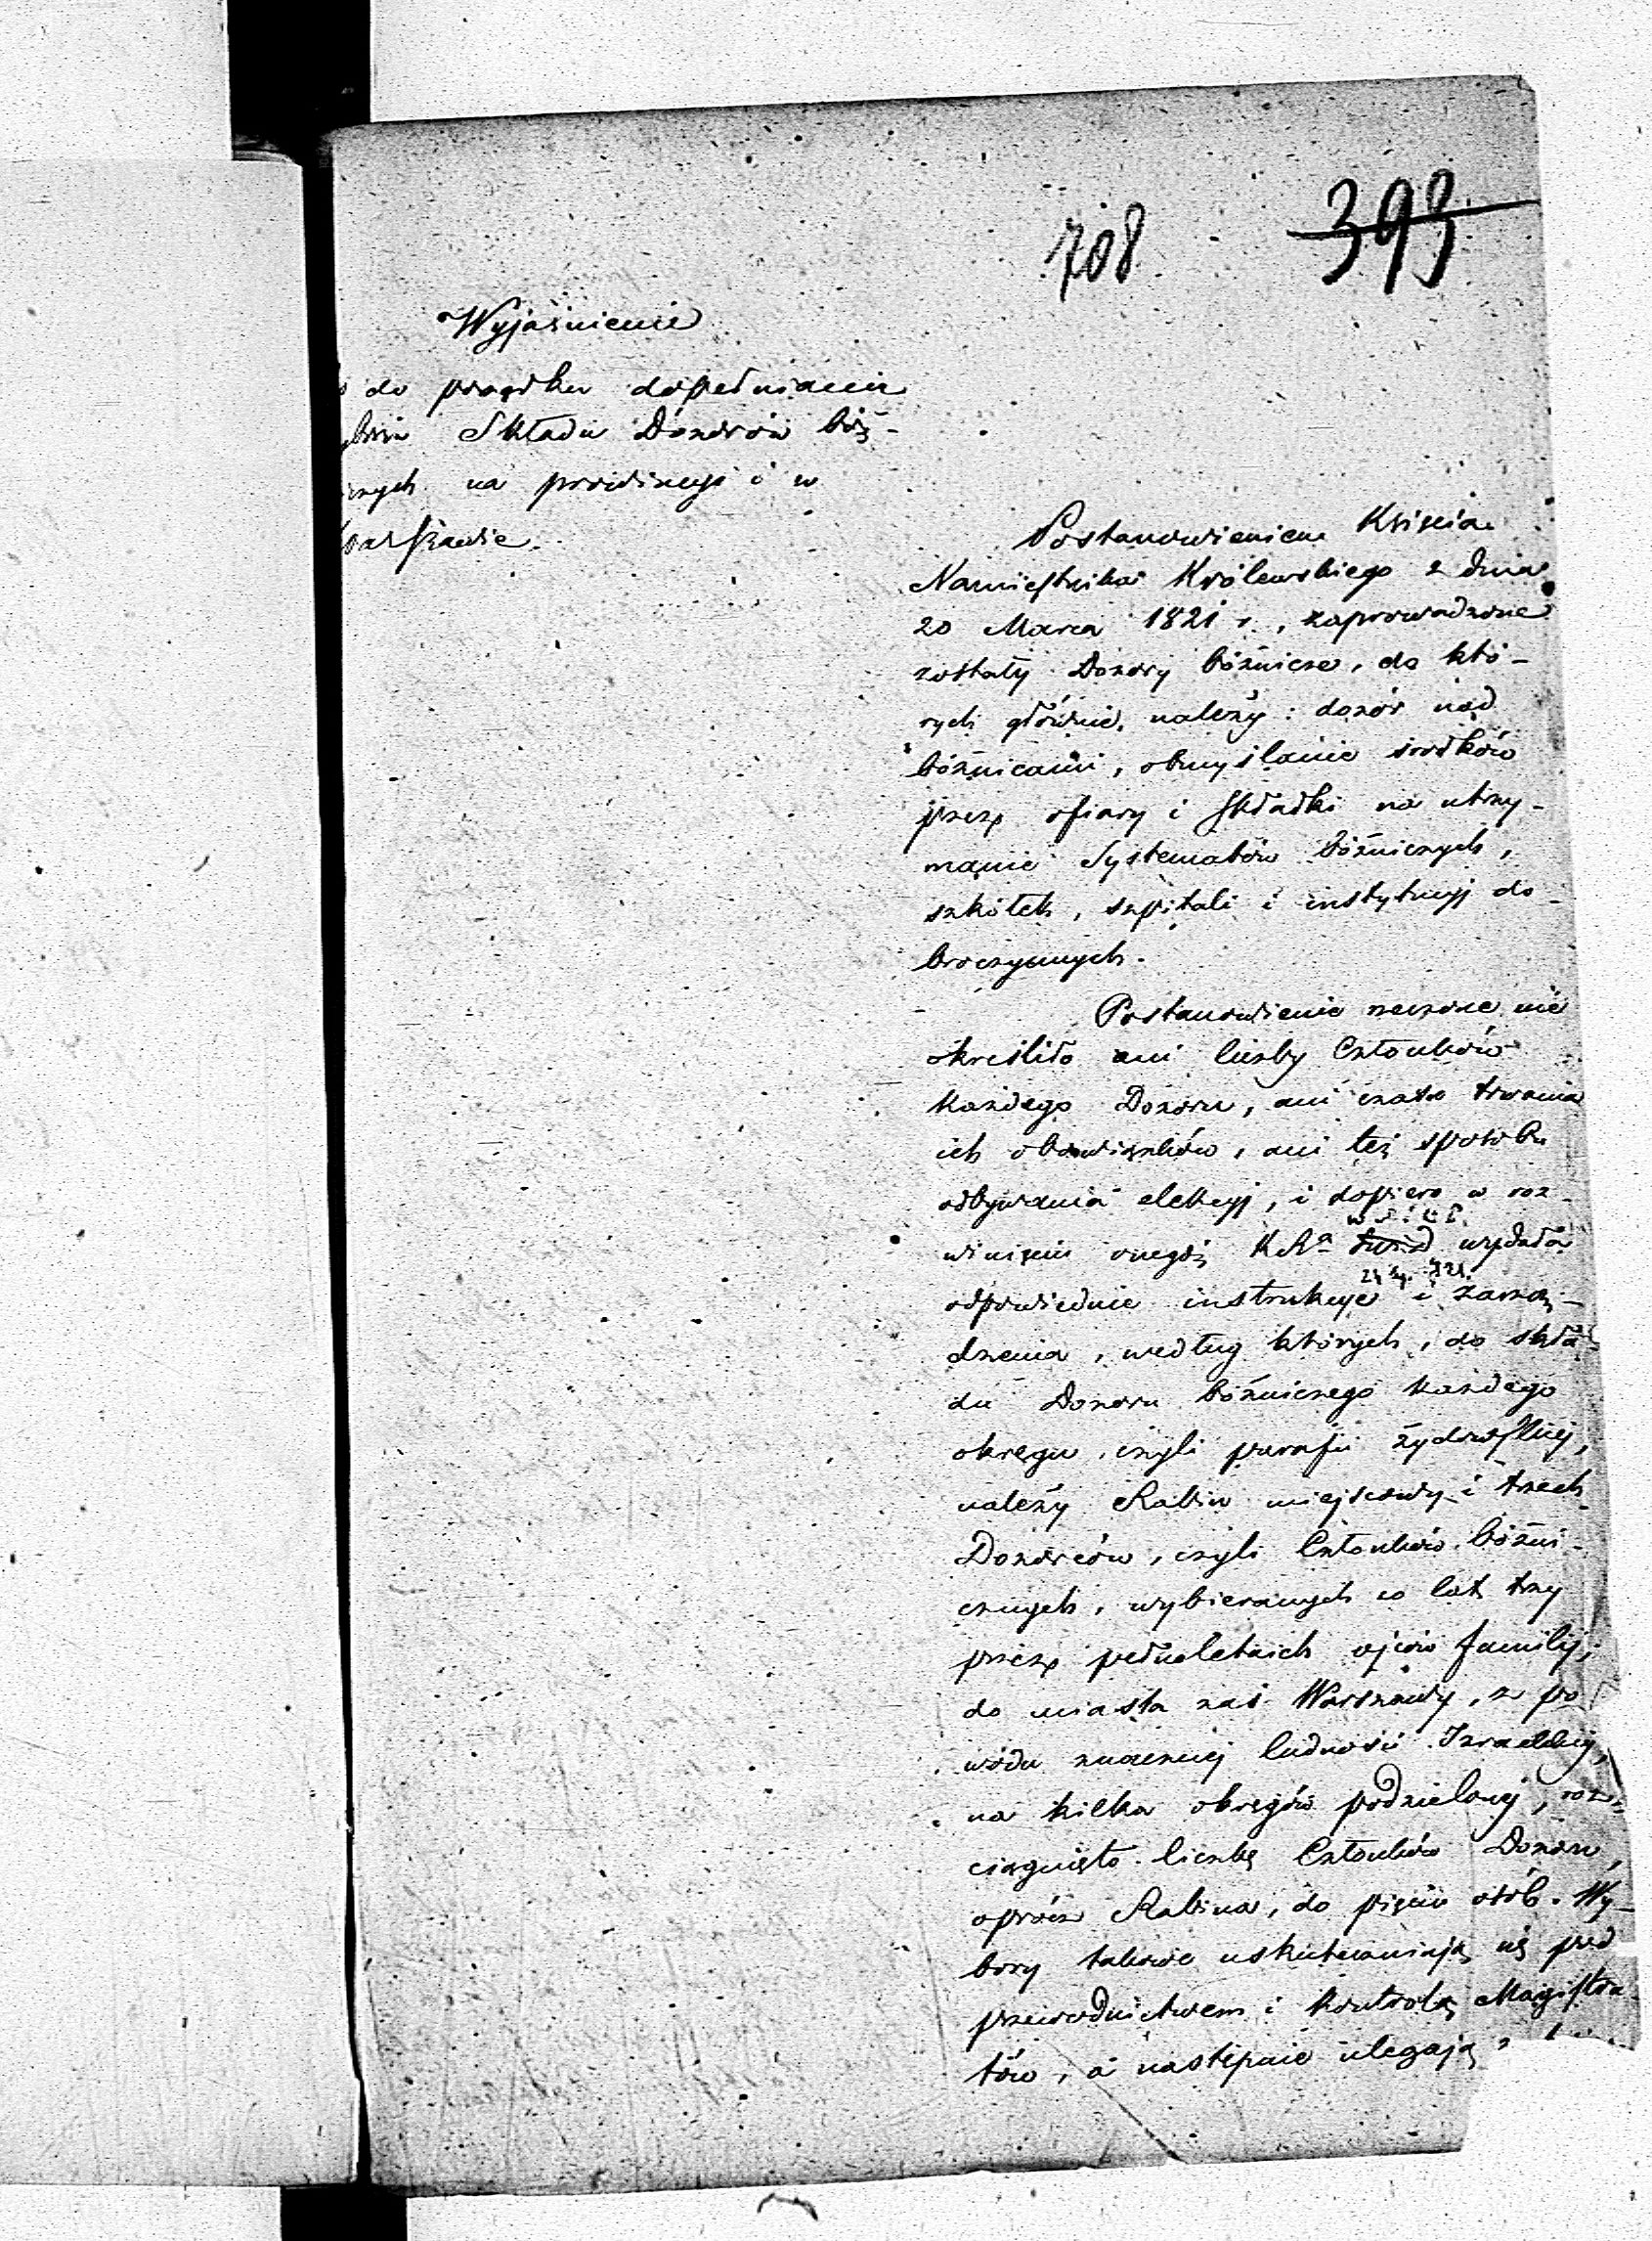 708 393
Wyjaśnienie
do porządku dopełniania
Składu Dozorów bóż-
nych na prowincyi i w
Warszawie.
Postanowieniem Księcia
Namiestnika Królewskiego z dnia
20 Marca 1821 r., zaprowadzone
zostały Dozory bóżnicze, do któ-
rych głównie należy: dozór nad
bóżnicami, obmyślanie środków
przez ofiary i składki na utrzy-
manie Systematów bóżniczych,
szkółek, szpitali i instytucyj do-
broczynnych.
Postanowienie rzeczone nie
określiło ani liczby Członków
każdego Dozoru, ani czasu trwania
ich obowiązków, ani też sposobu
odbywania elekcyj, i dopiero w roz-
winięciu onegoż wydała
odpowiednie instrukcye i zarzą-
dzenia, według których, do skła-
du Dozoru bóżniczego każdego
okręgu, czyli parafii żydowskiej,
należy Rabin miejscowy i trzech
Dozorców, czyli Członków bóżni-
cznych, wybieranych co lat trzy
przez pełnoletnich ojców familij;
do miasta zaś Warszawy, z po
wodu znacznej ludności Izraelskiej,
na kilka okręgów podzielonej, roz-
ciągnięto liczbę Członków Dozoru,
oprócz Rabina, do pięciu osób. Wy-
bory takowe uskuteczniają się pod
przewodnictwem i kontrolą Magistra-
tów, a następnie ulegają